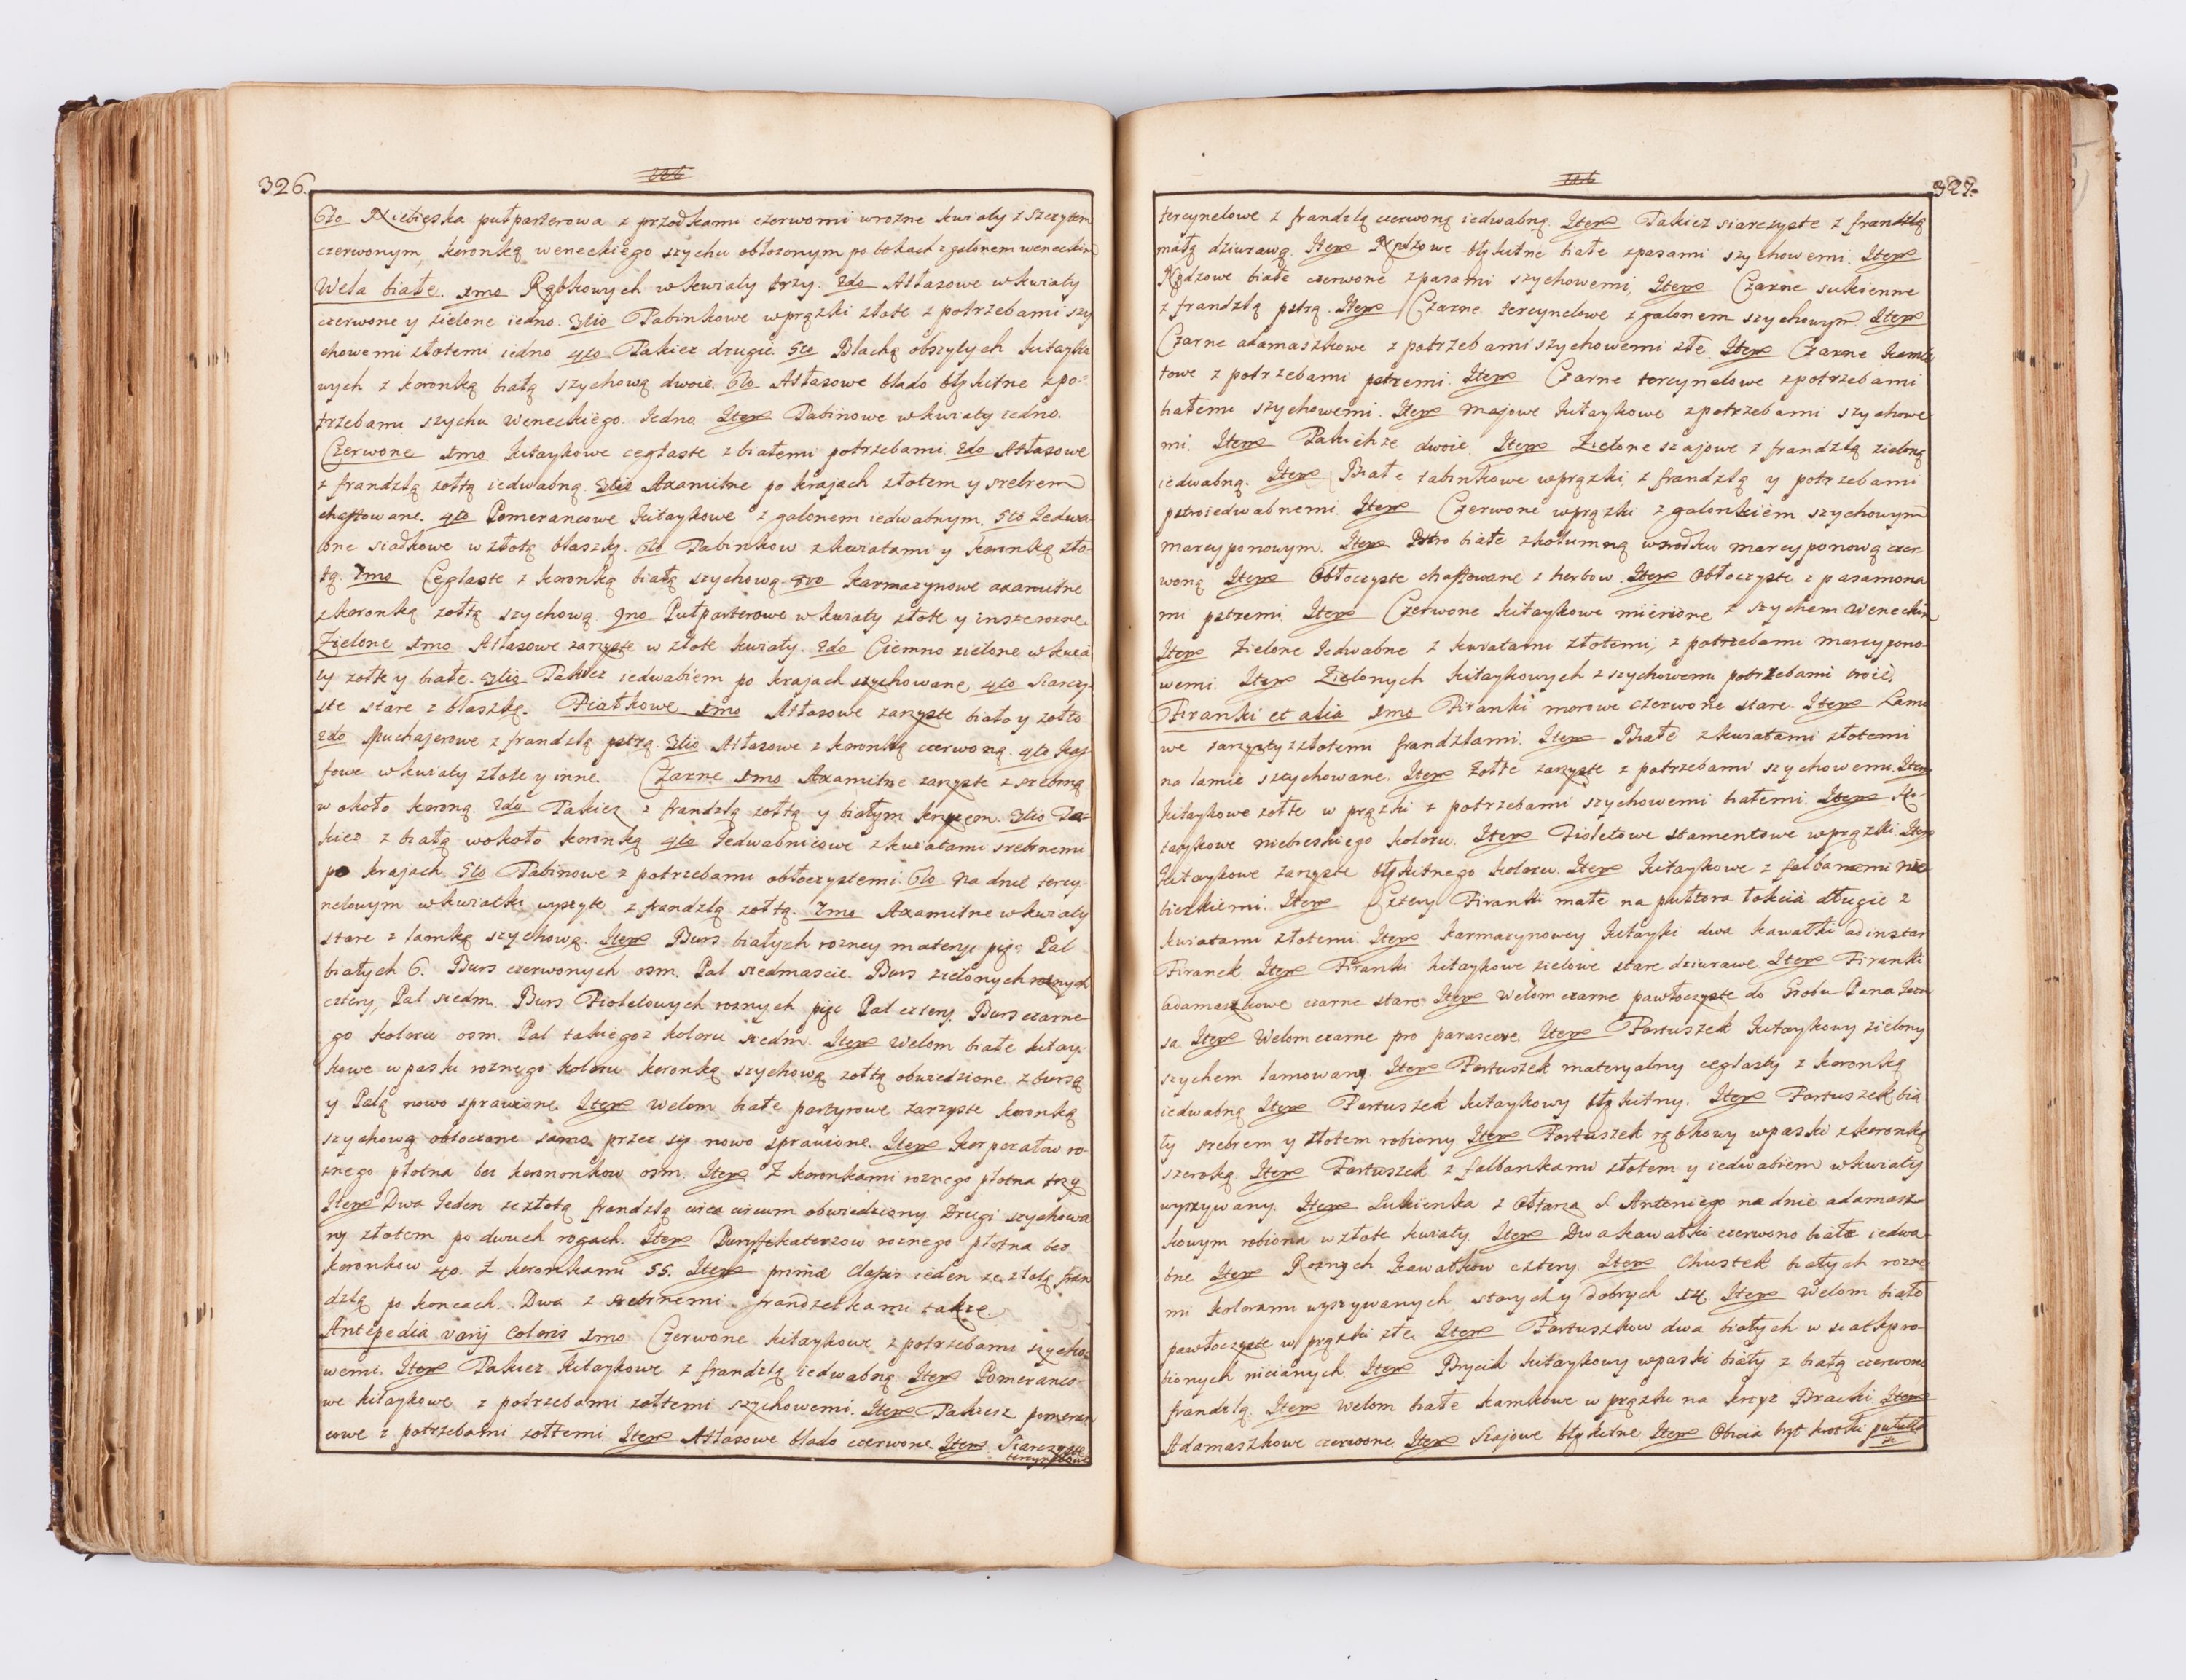 326.
6to Niebieska pułparterowa z przodkami czerwomi wrozne kwiaty z szczytem
czerwonym, koronką weneckiego szychu obłozonym po bokach z galonem weneckim
Wela białe. 1mo Rąbkowych w kwiaty trzy. 2do Atłasowe w kwiaty
czerwone y zielone iedno. 3tio Tabinkowe wprązki złote z potrzebami szy
chowemi złotemi iedno 4to Takiez drugie. 5to Blachą obszytych kitayko
wych z koronką białą szychową dwoie. 6to Atłasowe blado błękitne zpo-
trzebami szychu weneckiego. Jedno Item Tabinowe w kwiaty iedno.
Czerwone 1mo kitaykowe ceglaste z białemi potrzebami. 2do Atłasowe
z frandzlą zołtą iedwabną. 3tio Axamitne po krajach złotem y srebrem
chaftowane. 4to Pomerancowe kitaykowe z galonem iedwabnym. 5to Jedwa
bne siadkowe w złotą blaszkę. 6to Tabinkow z kwiatami y koronką zło-
tą. 7mo Ceglaste z koronką białą szychową 8vo karmazynowe axamitne
z koronką zołtą szychową. 9no Pułparterowe w kwiaty złote y insze rozne.
Zielone 1mo Atłasowe zarzyste w złote kwiaty. 2do Ciemno zielone w kwia
ty zołte y białe. 3tio Takiez iedwabiem po krajach szychowane, 4to Siarczy-
ste stare z blaszką. Fiałkowe 1mo Atłasowe zarzyste biało y zołto
2do Muchajerowe z frandzlą pstrą. 3tio Atłasowe z koronką czerwoną. 4to Kaf-
fowe w kwiaty złote y inne. Czarne 1mo Axamitne zarzyste z srebrną
w około koroną 2do Takiez z frandzlą zołtą y białym krzyzem. 3tio Ta-
kiez z białą wokoło koronką 4to Jedwabnicowe z kwiatami srebrnemi
po krajach. 5to Tabinowe z potrzebami obłoczystemi. 6to na dnie tercy-
nelowym w kwiatki wyszyte z frandzlą zołtą. 7mo Axamitne w kwiaty
stare z lamką szychową. Item Burs białych rozney materyi pięc Pal
białych 6. Burs czerwonych osm. Pal siedmascie. Burs zielonych roznych
cztery, Pal siedm. Burs Fioletowych roznych pięc Pal cztery. Burs czarne
go koloru osm. Pal takiegoz koloru siedm. Item Welom białe kitay-
kowe w paski roznego koloru koronką szychową zołtą obwiedzione z bursą
y Palą nowo sprawione. Item Welom białe partyrowe zarzyste koronką
szychową obłoczone samo przez się nowo sprawione. Item Korporałow ro-
znego płotna bez korononkow osm. Item Z koronkami roznego płotna trzy
Item Dwa Jeden ze złotą frandzlą circa circum obwiedziony Drugi szychowa
ny złotem po dwuch rogach. Item Puryfikaterzow roznego płotna bez
koronkow 40. Z koronkami 55. Item primæ Clasis ieden ze złotą fran
dzlą po koncach. Dwa z srebrnemi frandzelkami takze.
Antepedia varij Coloris 1mo Czerwone kitaykowe z potrzebami szycho
wemi. Item Takiez kitaykowe z frandzlą iedwabną. Item Pomeranco-
we kitaykowe z potrzebami zołtemi szychowemi. Item Takiesz pomeran
cowe z potrzebami zołtemi Item Atłasowe blado czerwone. Item Siarczyste
tercynelowe
327.
tercynelowe z frandzlą czerwoną iedwabną. Item Takiez siarczyste z frandzlą
małą dziurawą. Item Rydzowe błękitne białe zpasami szychowemi. Item
Rydzowe białe czerwone zpasami szychowemi, Item Czarne sukienne
z frandzlą pstrą. Item Czarne tercynelowe z galonem szychowym. Item
Czarne adamaszkowe z potrzebami szychowemi złe. Item Czarne kamle
towe z potrzebami pstremi. Item Czarne tercynelowe zpotrzebami
białemi szychowemi. Item Majowe kitaykowe zpotrzebami szychowe
mi. Item Takichze dwoie. Item Zielone szajowe z frandzlą zieloną
iedwabną. Item Białe tabinkowe wprązki, z frandzlą y potrzebami
pstroiedwabnemi. Item Czerwone wprązki z galonkiem szychowym
marcyponowym. Item Pstro białe z kolumną wsrodku marcyponową czer-
woną Item Obłoczyste chaftowane z herbow. Item Obłoczyste z pasamona
mi pstremi Item Czerwone kitaykowe mienione z szychem weneckim
Item Zielone Jedwabne z kwiatami złotemi, z potrzebami marcypono-
wemi. Item Zielonych kitaykowych z szychowemi potrzebami troie.
Firanki et alia 1mo Firanki morowe czerwone stare. Item Lamo
we zarzysty z złotemi frandzlami. Item Białe z kwiatami złotemi
na lamie szychowane. Item Zołte zarzyste z potrzebami szychowemi. Item
kitaykowe zołte w prązki z potrzebami szychowemi białemi. Item Ki-
taykowe niebieskiego koloru. Item Fioletowe stamentowe wprązki. Item
kitaykowe zarzyste błękitnego koloru. Item kitaykowe z falbanami nie-
bieskiemi. Item Cztery Firanki małe na pułtora łokcia długie z
kwiatami złotemi. Item karmazynowey kitayki dwa kawałki ad instar
Firanek Item Firanki kitaykowe zielowe stare dziurawe. Item Firanki
adamaszkowe czarne stare Item Welom czarne pawłoczyste do Grobu Pana Jezu
sa Item Welom czarne pro parasceve. Item Fartuszek kitaykowy zielony
szychem lamowany. Item Fartuszek materyalny ceglasty z koronką
iedwabną Item Fartuszek kitaykowy błękitny. Item Fartuszek bia
ły srebrem y złotem robiony. Item Fartuszek rąbkowy wpaski z koronką
szeroką. Item Fartuszek z falbankami złotem y iedwabiem w kwiaty
wyszywany. Item Sukienka z Ołtarza S Antoniego na dnie adamasz-
kowym robiona w złote kwiaty. Item Dwa kawałki czerwono białe iedwa-
bne Item Roznych kawałkow cztery. Item Chustek białych rozne
mi kolorami wyszywanych starych y dobrych 14. Item Welom biało
pawłoczyste w prązki złe. Item Fartuszkow dwa białych w siatkę ro-
bionych nicianych. Item Brycik kitaykowy wpaski biały z białą czerwoną
frandzlą. Item Welom białe kamkowe w prązki na krzyz Bracki Item
Adamaszkowe czerwone Item Szajowe błękitne. Item Obicia był krotki